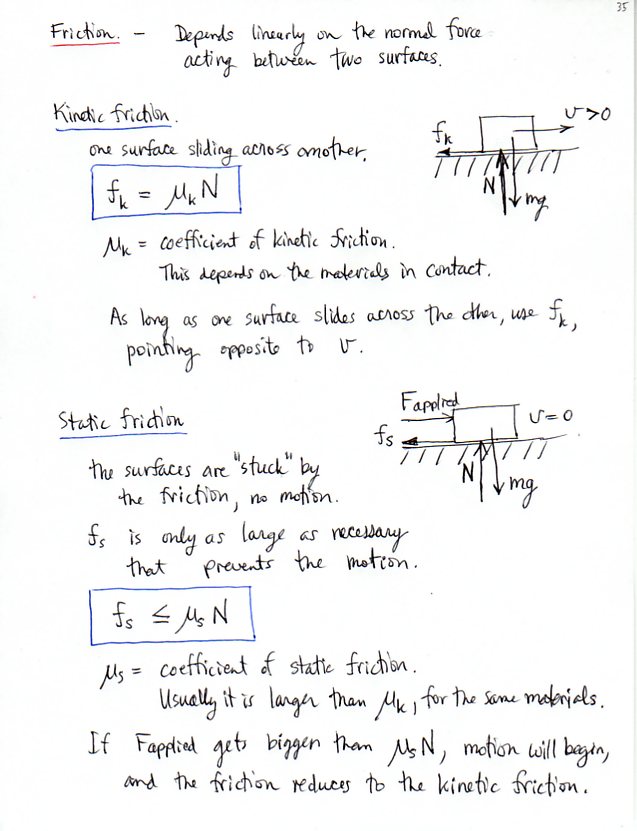 35
Friction. - Depends linearly on the normal force
acting between two surfaces.
Kinetic friction.
one surface sliding across another.
fk = μk N
μk = coefficient of kinetic friction.
This depends on the materials in contact.
As long as one surface slides across the other, use fk,
pointing opposite to v.
fk
v>0
N
mg
Static friction
the surfaces are "stuck" by
the friction, no motion.
fs is only as large as necessary
that prevents the motion.
fs ≤ μs N
μs = coefficient of static friction.
Usually it is larger than μk, for the same materials.
If Fapplied gets bigger than μsN, motion will begin,
and the friction reduces to the kinetic friction.
Fapplied
v=0
fs
N
mg